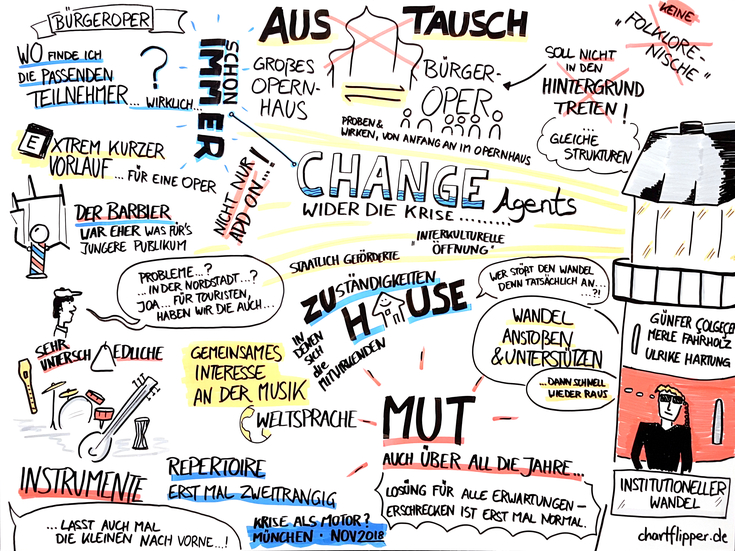 BÜRGEROPER
WO FINDE ICH
DIE PASSENDEN
TEILNEHMER... WIRKLICH...
?
SCHON
IMMER
AUSTAUSCH
GROßES
OPERN-
HAUS
BÜRGER-
OPER
PROBEN &
WIRKEN, VON ANFANG AN IM OPERNHAUS
KEINE
"FOLKLORE-
NISCHE"
SOLL NICHT
IN DEN
HINTERGRUND
TRETEN!
...
GLEICHE
STRUKTUREN
EXTREM KURZER
VORLAUF ... FÜR EINE OPER
NICHT NUR
ADD-ON...!
CHANGE Agents
WIDER DIE KRISE.........
DER BARBIER
WAR EHER WAS FÜR'S
JÜNGERE PUBLIKUM
"INTERKULTURELLE
ÖFFNUNG"
STAATLICH GEFÖRDERTE
ZUSTÄNDIGKEITEN
HAUSE
IN
DENEN
SICH
die
MITWIRKENDEN
PROBLEME...?
...IN DER NORDSTADT...?
JOA... FÜR TOURISTEN,
HABEN WIR DIE AUCH...
WER STÖRT DEN WANDEL
DENN TATSÄCHLICH AN...
...?!
WANDEL
ANSTOßEN
& UNTERSTÜTZEN
...DANN SCHNELL
WIEDER RAUS
SEHR
UNTERSCHIEDLICHE
INSTRUMENTE
GEMEINSAMES
INTERESSE
AN DER MUSIK
WELTSPRACHE
MUT
AUCH ÜBER ALL DIE JAHRE...
LÖSUNG FÜR ALLE ERWARTUNGEN –
ERSCHRECKEN IST ERST MAL NORMAL.
REPERTOIRE
ERST MAL ZWEITRANGIG
KRISE ALS MOTOR?
MÜNCHEN · NOV 2018
...LASST AUCH MAL
DIE KLEINEN NACH VORNE...!
GÜNFER ÇÖLGEÇEN
MERLE FAHRHOLZ
ULRIKE HARTUNG
INSTITUTIONELLER
WANDEL
chartflipper.de